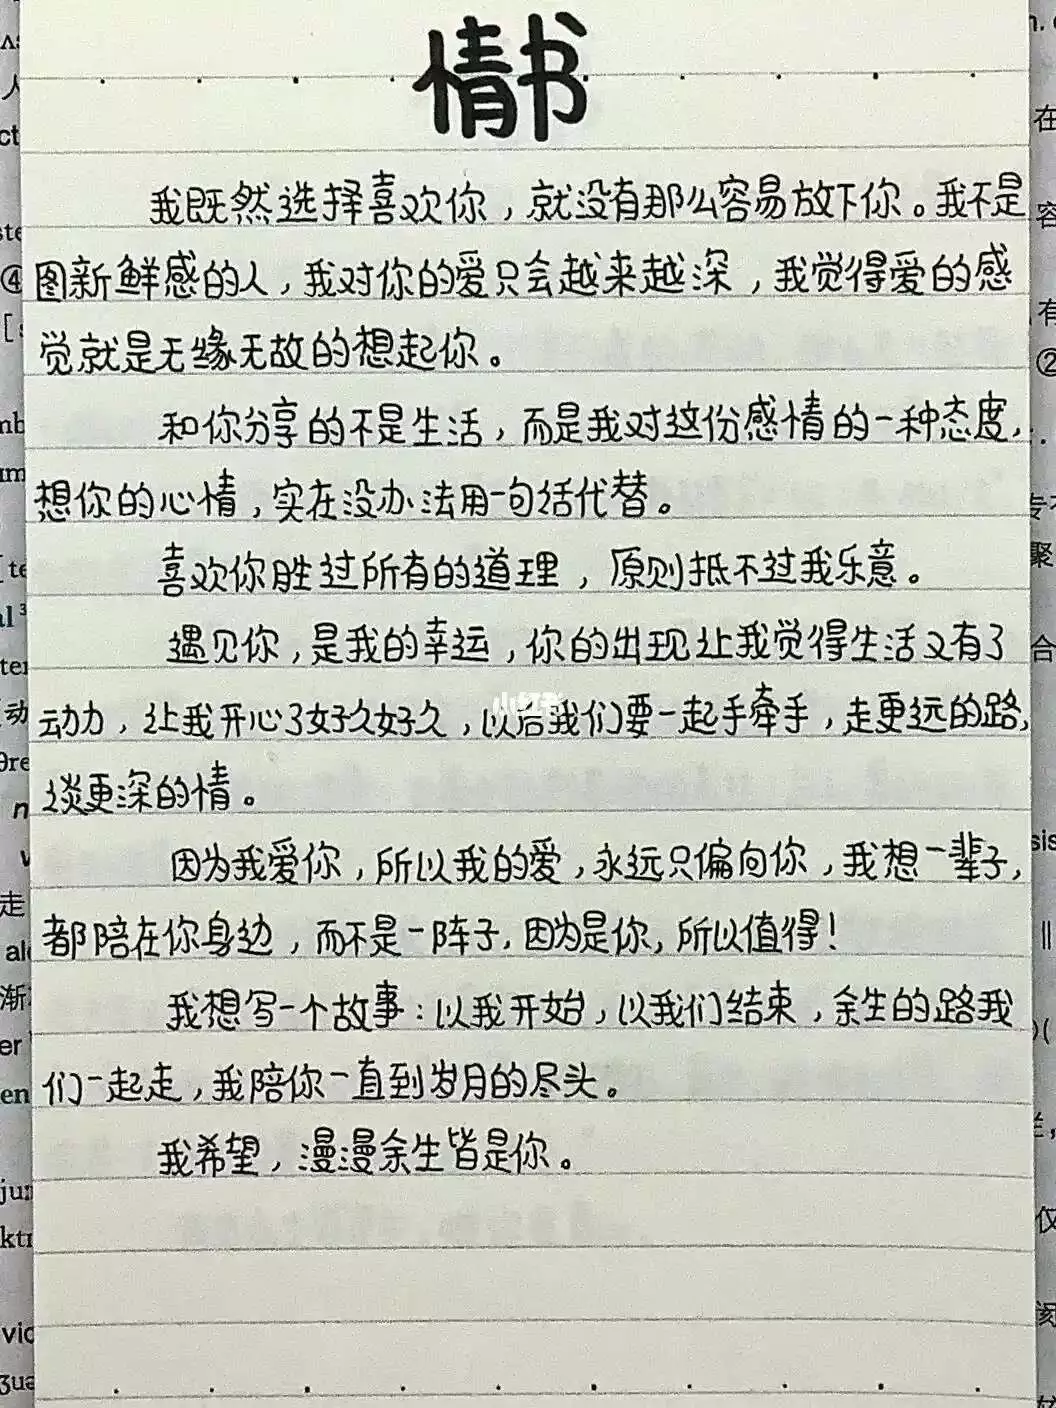 情书
我既然选择喜欢你，就没有那么容易放下你。我不是
图新鲜感的人，我对你的爱只会越来越深，我觉得爱的感
觉就是无缘无故的想起你。
和你分享的不是生活，而是我对这份感情的一种态度，
想你的心情，实在没办法用一句话代替。
喜欢你胜过所有的道理，原则抵不过我乐意。
遇见你，是我的幸运，你的出现让我觉得生活又有了
动力，让我开心了好久好久，以后我们要一起手牵手，走更远的路，
谈更深的情。
因为我爱你，所以我的爱，永远只偏向你，我想一辈子，
都陪在你身边，而不是一阵子，因为是你，所以值得！
我想写一个故事：以我开始，以我们结束，余生的路我
们一起走，我陪你一直到岁月的尽头。
我希望，漫漫余生皆是你。
小红书